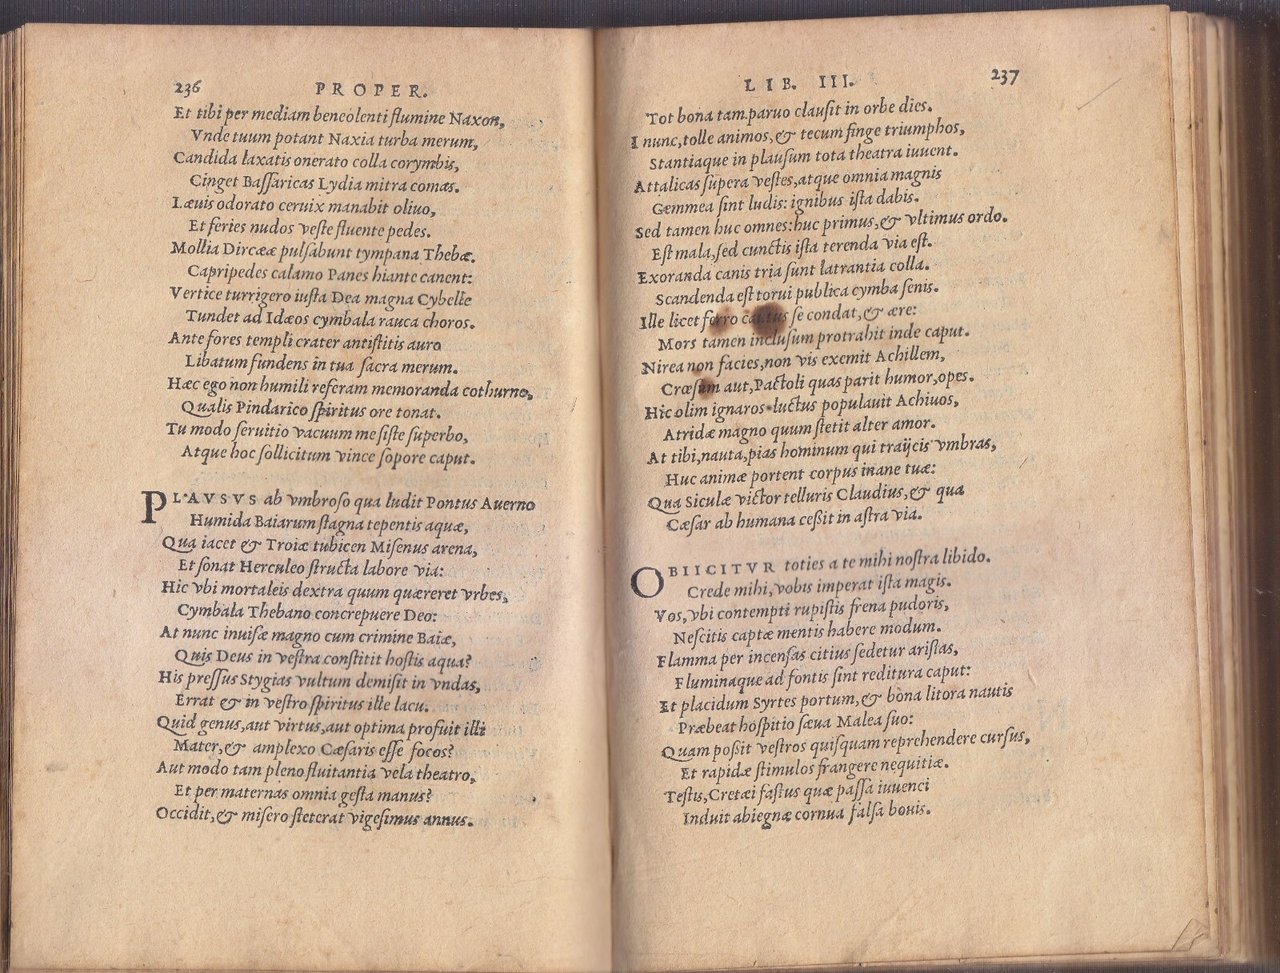 236 PROPER.
Et tibi per mediam beneolenti flumine Naxon,
Vnde tuum potant Naxia turba merum,
Candida laxatis onerato colla corymbis,
Cinget Bassaricas Lydia mitra comas.
Læuis odorato ceruix manabit oliuo,
Et feries nudos veste fluente pedes.
Mollia Dircææ pulsabunt tympana Thebæ.
Capripedes calamo Panes hiante canent:
Vertice turrigero iusta Dea magna Cybelle
Tundet ad Idæos cymbala rauca choros.
Ante fores templi crater antistitis auro
Libatum fundens in tua sacra merum.
Hæc ego non humili referam memoranda cothurno,
Qualis Pindarico spiritus ore tonat.
Tu modo seruitio vacuum me siste superbo,
Atque hoc sollicitum vince sopore caput.
PLAVSVS ab vmbroso qua ludit Pontus Auerno
Humida Baiarum stagna tepentis aquæ,
Qua iacet & Troiæ tubicen Misenus arena,
Et sonat Herculeo structa labore via:
Hic vbi mortaleis dextra quum quæreret vrbes,
Cymbala Thebano concrepuere Deo:
At nunc inuisæ magno cum crimine Baiæ,
Quis Deus in vestra constitit hostis aqua?
His pressus Stygias vultum demisit in vndas,
Errat & in vestro spiritus ille lacu.
Quid genus, aut virtus, aut optima profuit illi
Mater, & amplexo Cæsaris esse focos?
Aut modo tam pleno fluitantia vela theatro,
Et per maternas omnia gesta manus?
Occidit, & misero steterat vigesimus annus.
LIB. III. 237
Tot bona tam paruo clausit in orbe dies.
I nunc, tolle animos, & tecum finge triumphos,
Stantiaque in plausum tota theatra iuuent.
Attalicas supera vestes, atque omnia magnis
Gemmea sint ludis: ignibus ista dabis.
Sed tamen huc omnes: huc primus, & vltimus ordo.
Est mala, sed cunctis ista terenda via est.
Exoranda canis tria sunt latrantia colla.
Scandenda est torui publica cymba senis.
Ille licet ferro cautus se condat, & ære:
Mors tamen inclusum protrahit inde caput.
Nirea non facies, non vis exemit Achillem,
Crœsum aut, Pactoli quas parit humor, opes.
Hic olim ignaros luctus populauit Achiuos,
Atridæ magno quum stetit alter amor.
At tibi, nauta, pias hominum qui traijcis vmbras,
Huc animæ portent corpus inane tuæ:
Qua Siculæ victor telluris Claudius, & qua
Cæsar ab humana cessit in astra via.
OBIICITVR toties a te mihi nostra libido.
Crede mihi, vobis imperat ista magis.
Vos, vbi contempti rupistis frena pudoris,
Nescitis captæ mentis habere modum.
Flamma per incensas citius sedetur aristas,
Fluminaque ad fontis sint reditura caput:
Et placidum Syrtes portum, & bona litora nautis
Præbeat hospitio sæua Malea suo:
Quam possit vestros quisquam reprehendere cursus,
Et rapidæ stimulos frangere nequitiæ.
Testis, Cretæi fastus quæ passa iuuenci
Induit abiegnæ cornua falsa bouis.